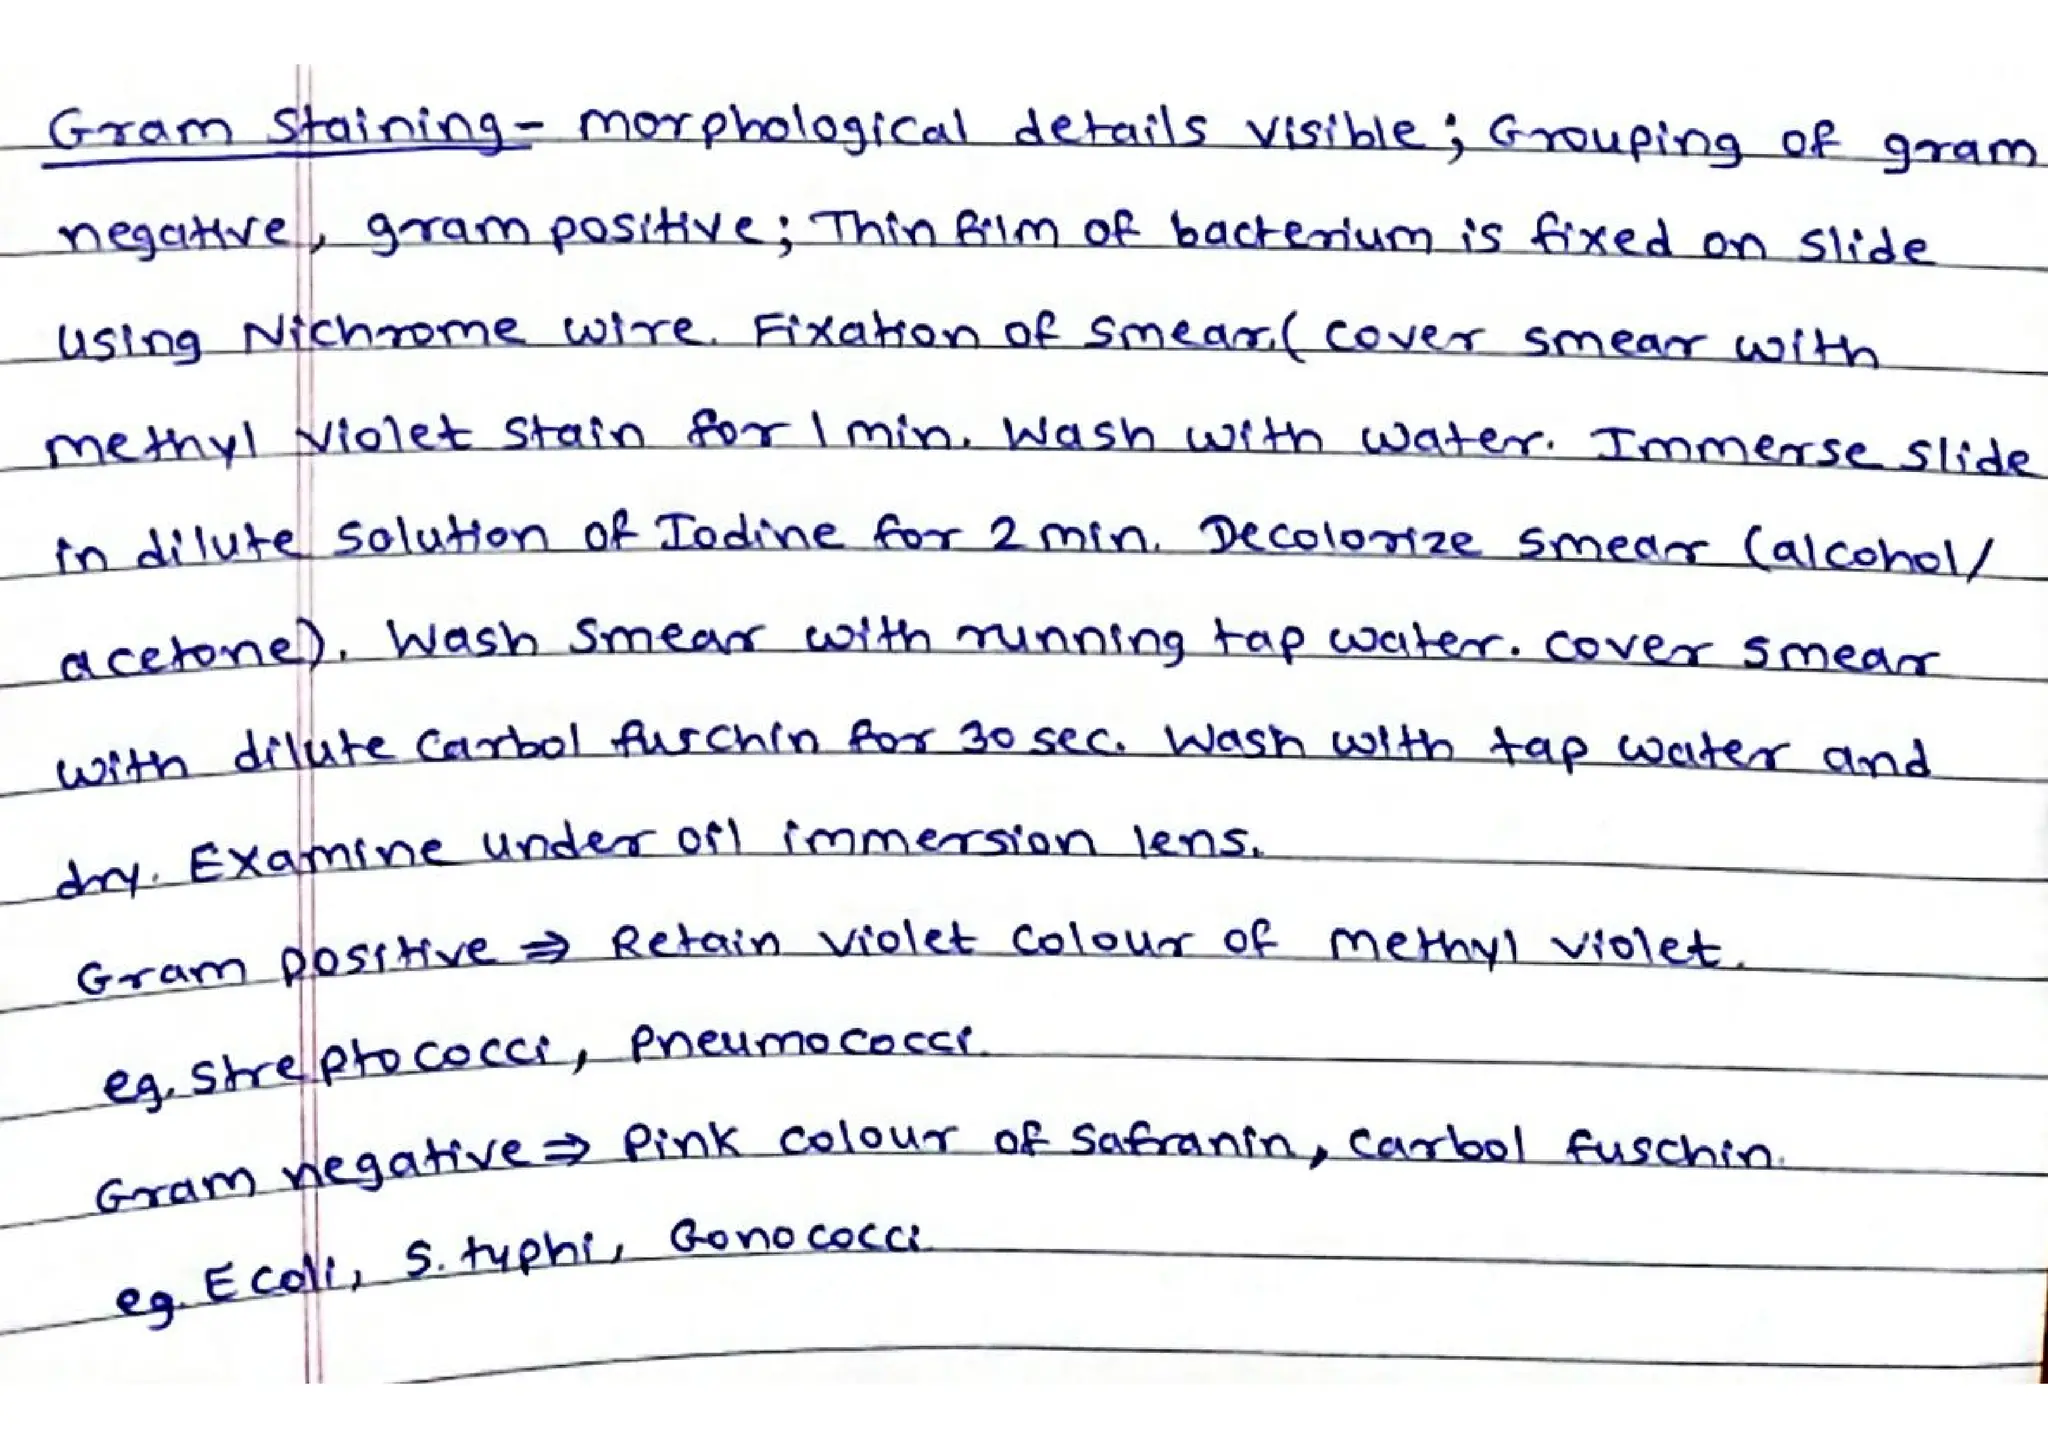 Gram Staining - morphological details visible; Grouping of gram
negative, gram positive; Thin film of bacterium is fixed on slide
using Nichrome wire. Fixation of smear.( cover smear with
methyl violet stain for 1 min. Wash with water. Immerse slide
in dilute solution of Iodine for 2 min. Decolorize smear (alcohol/
acetone). Wash smear with running tap water. cover smear
with dilute carbol fuschin for 30 sec. Wash with tap water and
dry. Examine under oil immersion lens.
Gram positive ⇒ Retain violet colour of methyl violet.
eg. streptococci, Pneumococci.
Gram negative ⇒ Pink colour of Safranin, Carbol fuschin.
eg. E coli, S. typhi, Gonococci